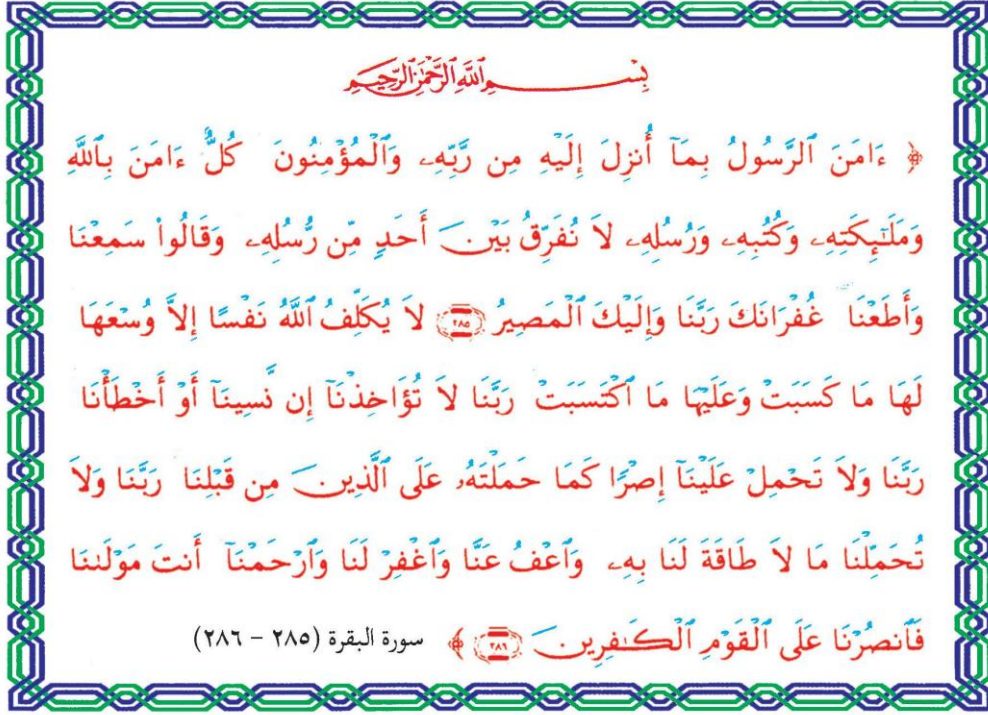 بِسْمِ ٱللَّهِ ٱلرَّحْمَٰنِ ٱلرَّحِيمِ
﴿ ءَامَنَ ٱلرَّسُولُ بِمَآ أُنزِلَ إِلَيْهِ مِن رَّبِّهِۦ وَٱلْمُؤْمِنُونَ كُلٌّ ءَامَنَ بِٱللَّهِ
وَمَلَٰٓئِكَتِهِۦ وَكُتُبِهِۦ وَرُسُلِهِۦ لَا نُفَرِّقُ بَيْنَ أَحَدٍ مِّن رُّسُلِهِۦ وَقَالُوا۟ سَمِعْنَا
وَأَطَعْنَا غُفْرَانَكَ رَبَّنَا وَإِلَيْكَ ٱلْمَصِيرُ ٢٨٥ لَا يُكَلِّفُ ٱللَّهُ نَفْسًا إِلَّا وُسْعَهَا
لَهَا مَا كَسَبَتْ وَعَلَيْهَا مَا ٱكْتَسَبَتْ رَبَّنَا لَا تُؤَاخِذْنَآ إِن نَّسِينَآ أَوْ أَخْطَأْنَا
رَبَّنَا وَلَا تَحْمِلْ عَلَيْنَآ إِصْرًا كَمَا حَمَلْتَهُۥ عَلَى ٱلَّذِينَ مِن قَبْلِنَا رَبَّنَا وَلَا
تُحَمِّلْنَا مَا لَا طَاقَةَ لَنَا بِهِۦ وَٱعْفُ عَنَّا وَٱغْفِرْ لَنَا وَٱرْحَمْنَآ أَنتَ مَوْلَىٰنَا
فَٱنصُرْنَا عَلَى ٱلْقَوْمِ ٱلْكَٰفِرِينَ ٢٨٦ ﴾ سورة البقرة (٢٨٥ - ٢٨٦)